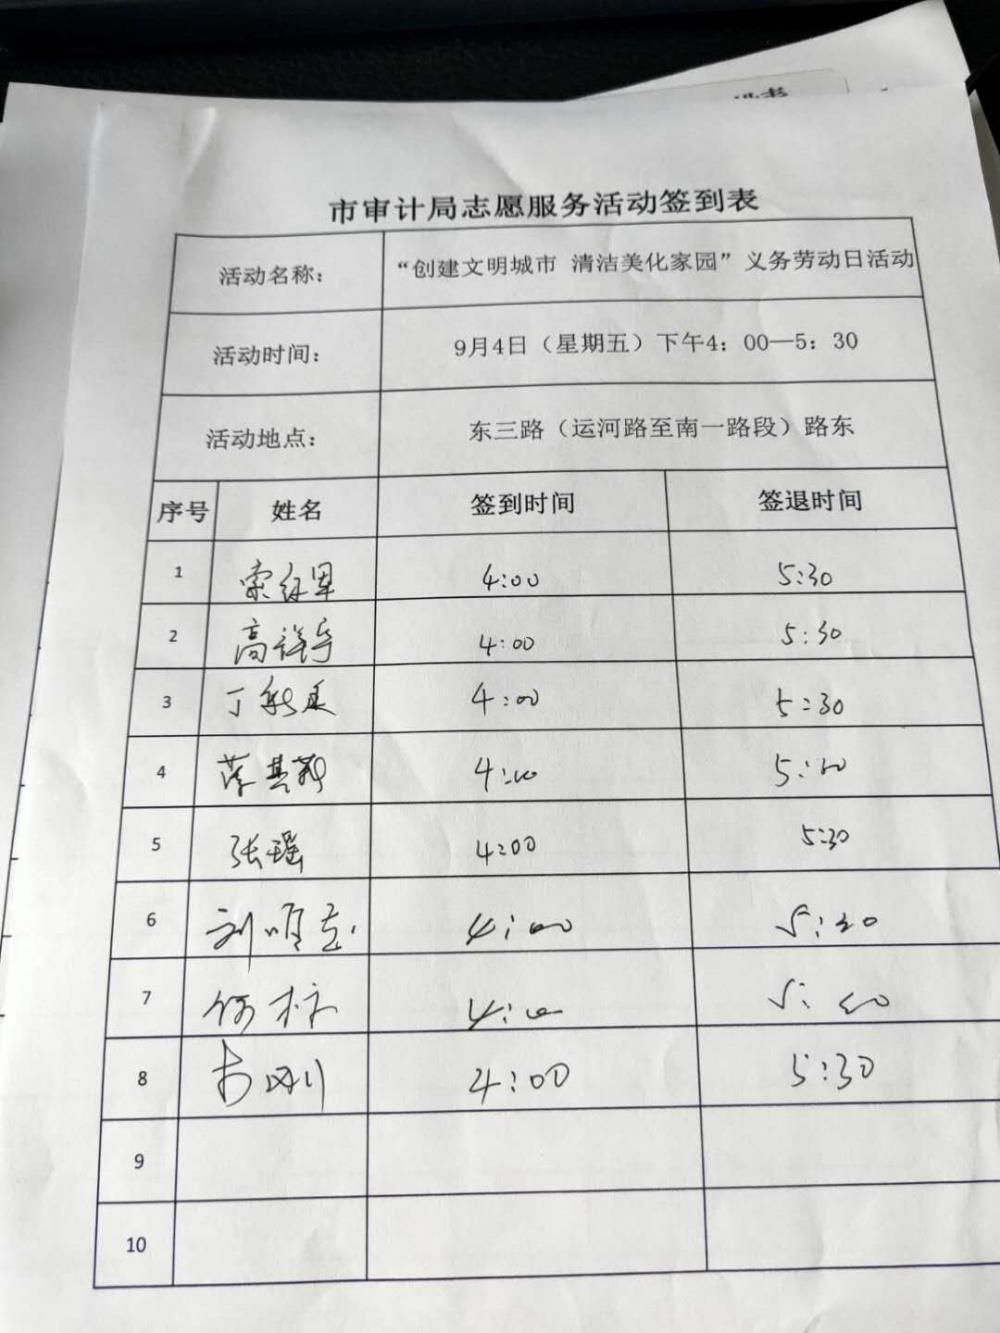 市审计局志愿服务活动签到表
活动名称： “创建文明城市 清洁美化家园”义务劳动日活动
活动时间： 9月4日（星期五）下午4：00—5：30
活动地点： 东三路（运河路至南一路段）路东
序号 姓名 签到时间 签退时间
1 4:00 5:30
2 高祥宇 4:00 5:30
3 4:00 5:30
4 4:00 5:30
5 张瑶 4:00 5:30
6 4:00 5:30
7 4:00 5:30
8 4:00 5:30
9
10